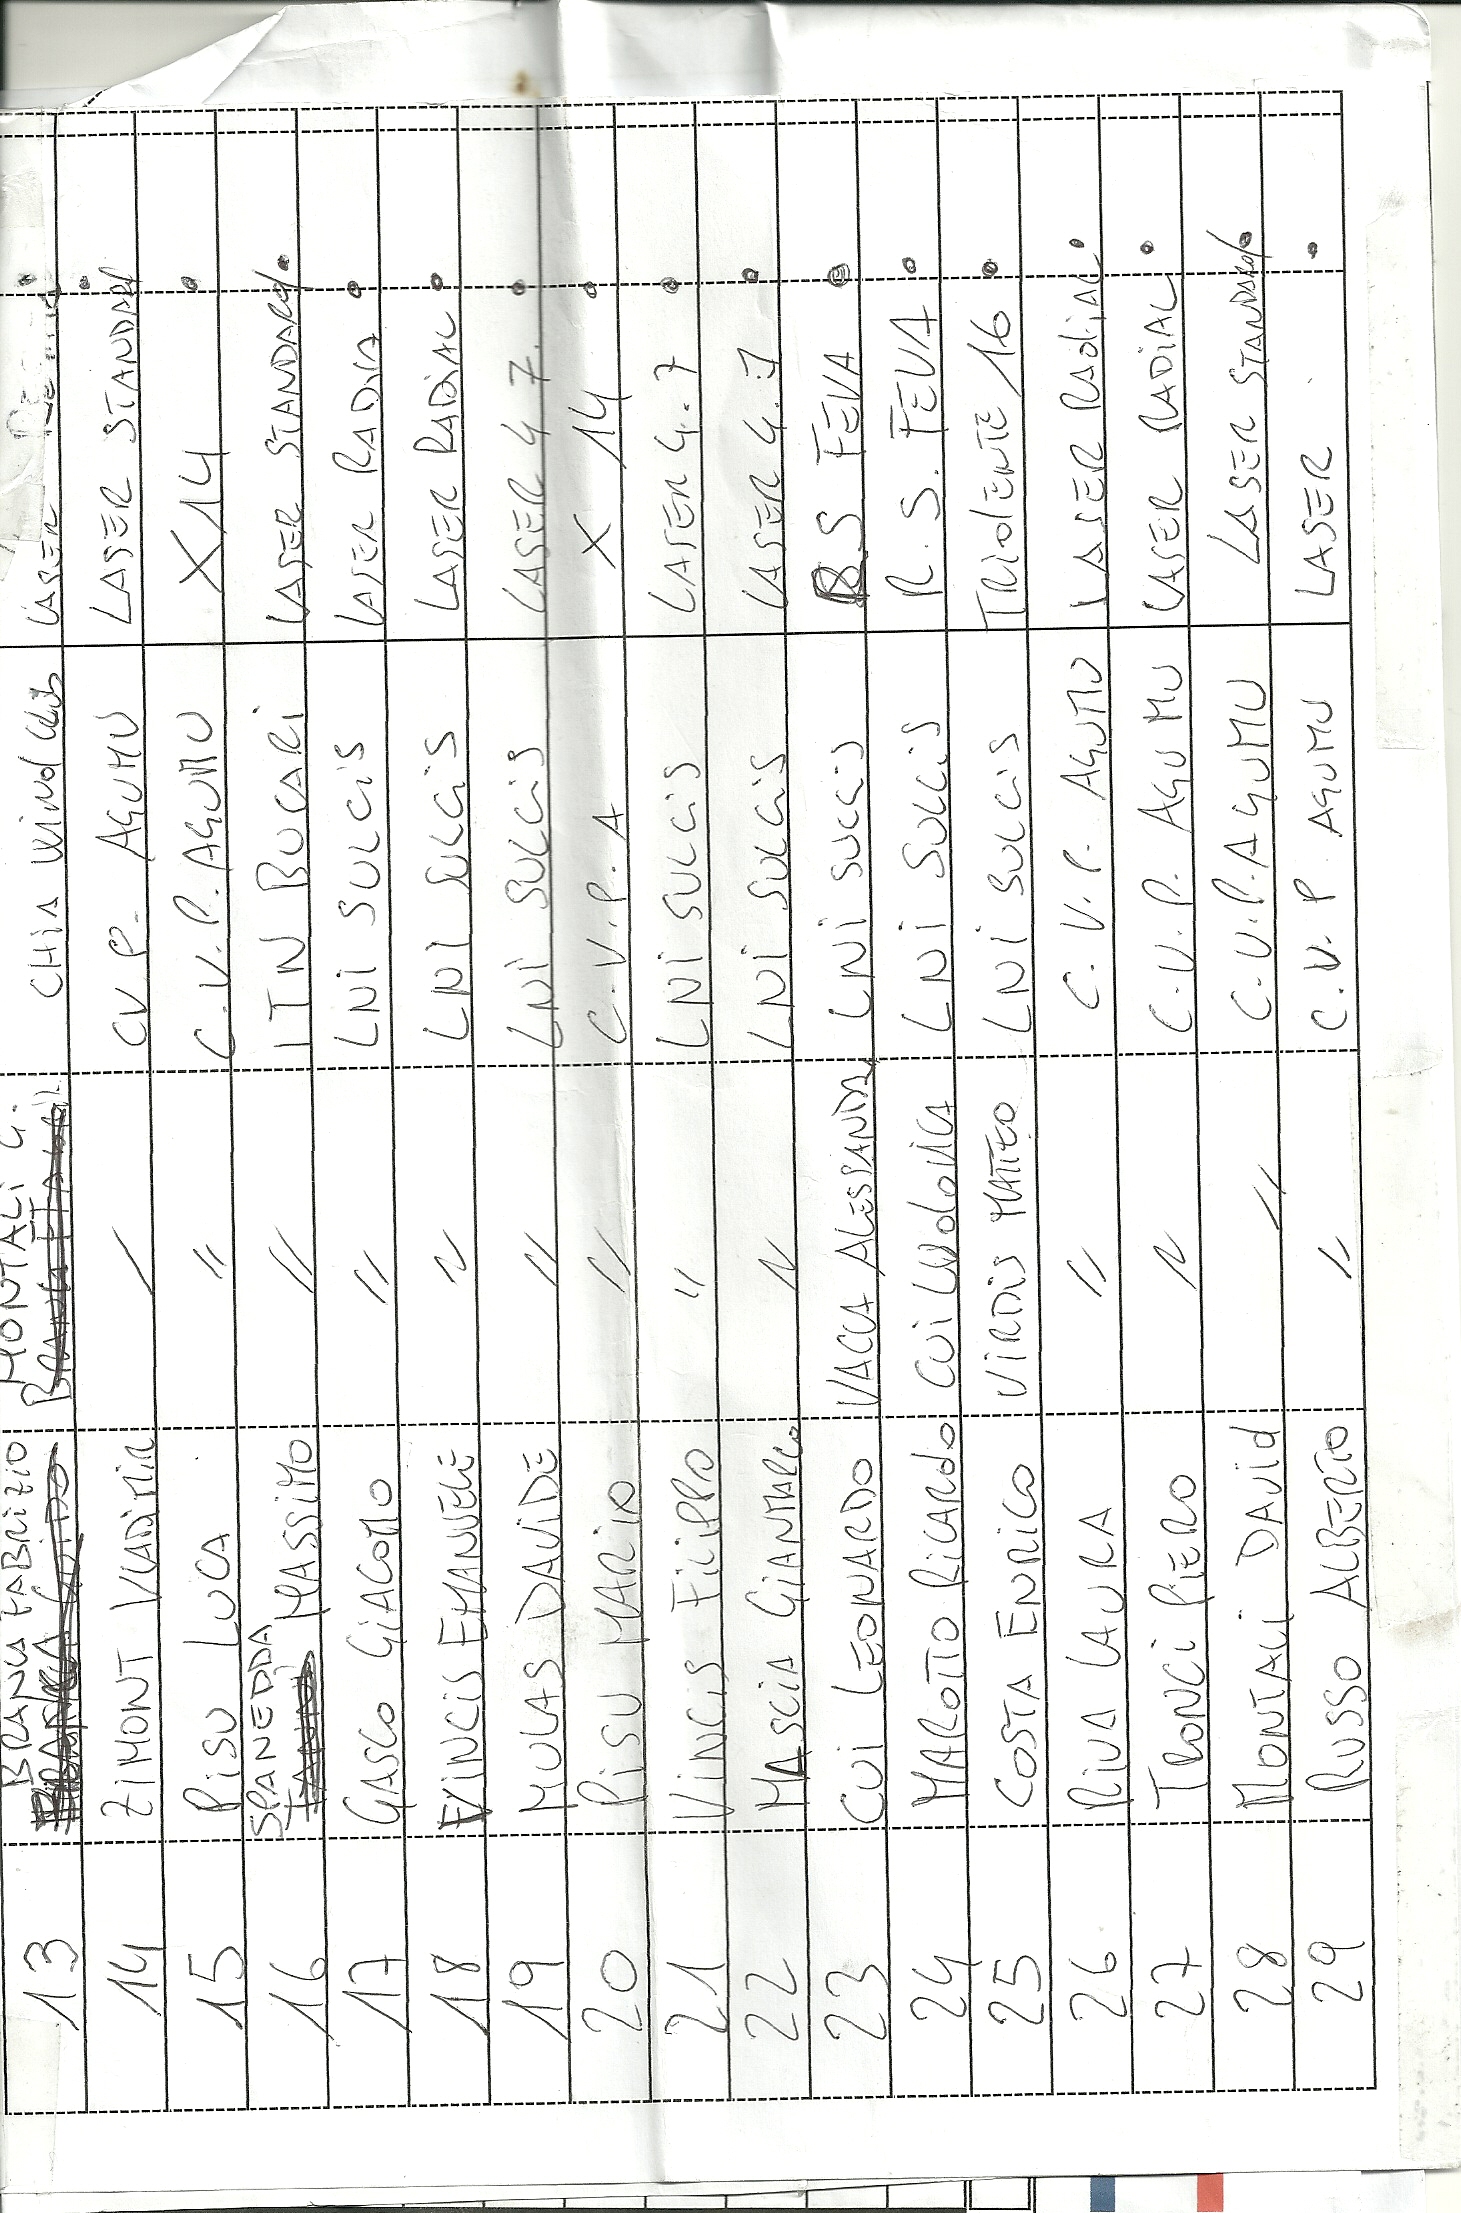 13 BRANCA FABRIZIO MONTALI G. CHIA Wind Club LASER
14 ZIMONT VLADIMIR / CV P. AGUMU LASER STANDARD
15 PISU LUCA " C.V.P. AGUMU X14
16 SPANEDDA MASSIMO " ITN BUCARI LASER STANDARD
17 GASCO GIACOMO " LNI SULCIS LASER RADIA
18 VINCIS EMANUELE " LNI SULCIS LASER RADIAL
19 MULAS DAVIDE " LNI SULCIS LASER 4 7.
20 PISU MARIO " C.V.P.A X 14
21 VINCIS FILIPPO " LNI SULCIS LASER 4.7
22 MASCIA GIANMARCO " LNI SULCIS LASER 4.7
23 CUI LEONARDO VACCA ALESSANDRA LNI SULCIS RS FEVA
24 MAROTTO RICARDO CUI LUDOVICA LNI SULCIS R.S. FEVA
25 COSTA ENRICO VIRDIS MATTEO LNI SULCIS TRIDENTE 16
26 RIVA LAURA " C.V.P. AGUMU LASER RADIAL
27 TRONCI PIERO " C.V.P. AGUMU LASER RADIAL
28 MONTALI DAVID " C.V.P. AGUMU LASER STANDARD
29 RUSSO ALBERTO " C.V.P AGUMU LASER